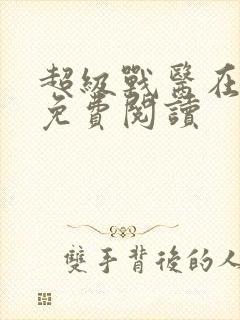 超級戰醫在
免費閱讀
雙手背後的人